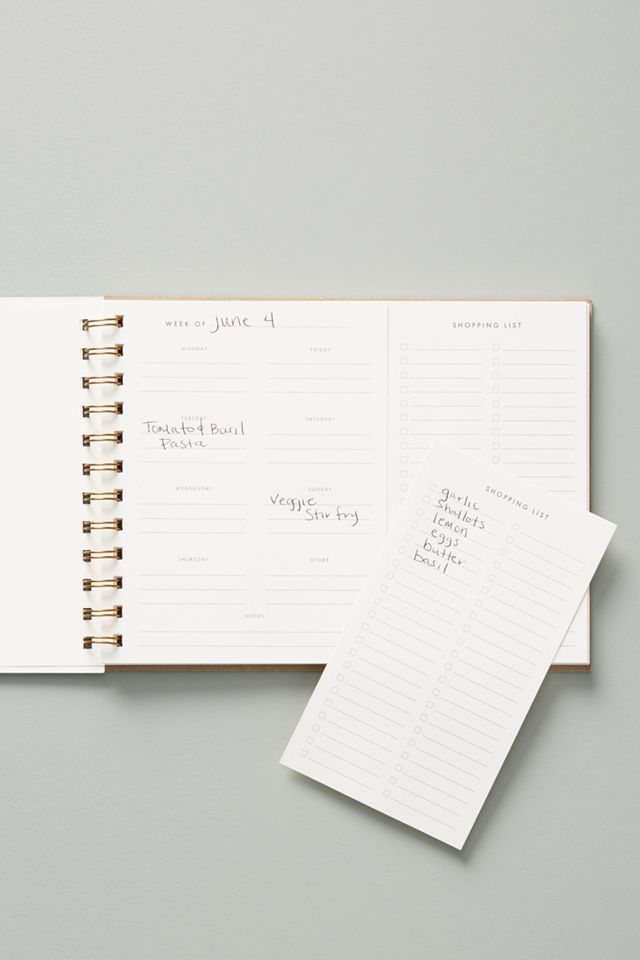 WEEK OF june 4
MONDAY
TUESDAY
Tomato & Basil
Pasta
WEDNESDAY
THURSDAY
FRIDAY
SATURDAY
SUNDAY
Veggie
Stir fry
OTHER
NOTES
SHOPPING LIST
SHOPPING LIST
garlic
shallots
lemon
eggs
butter
basil